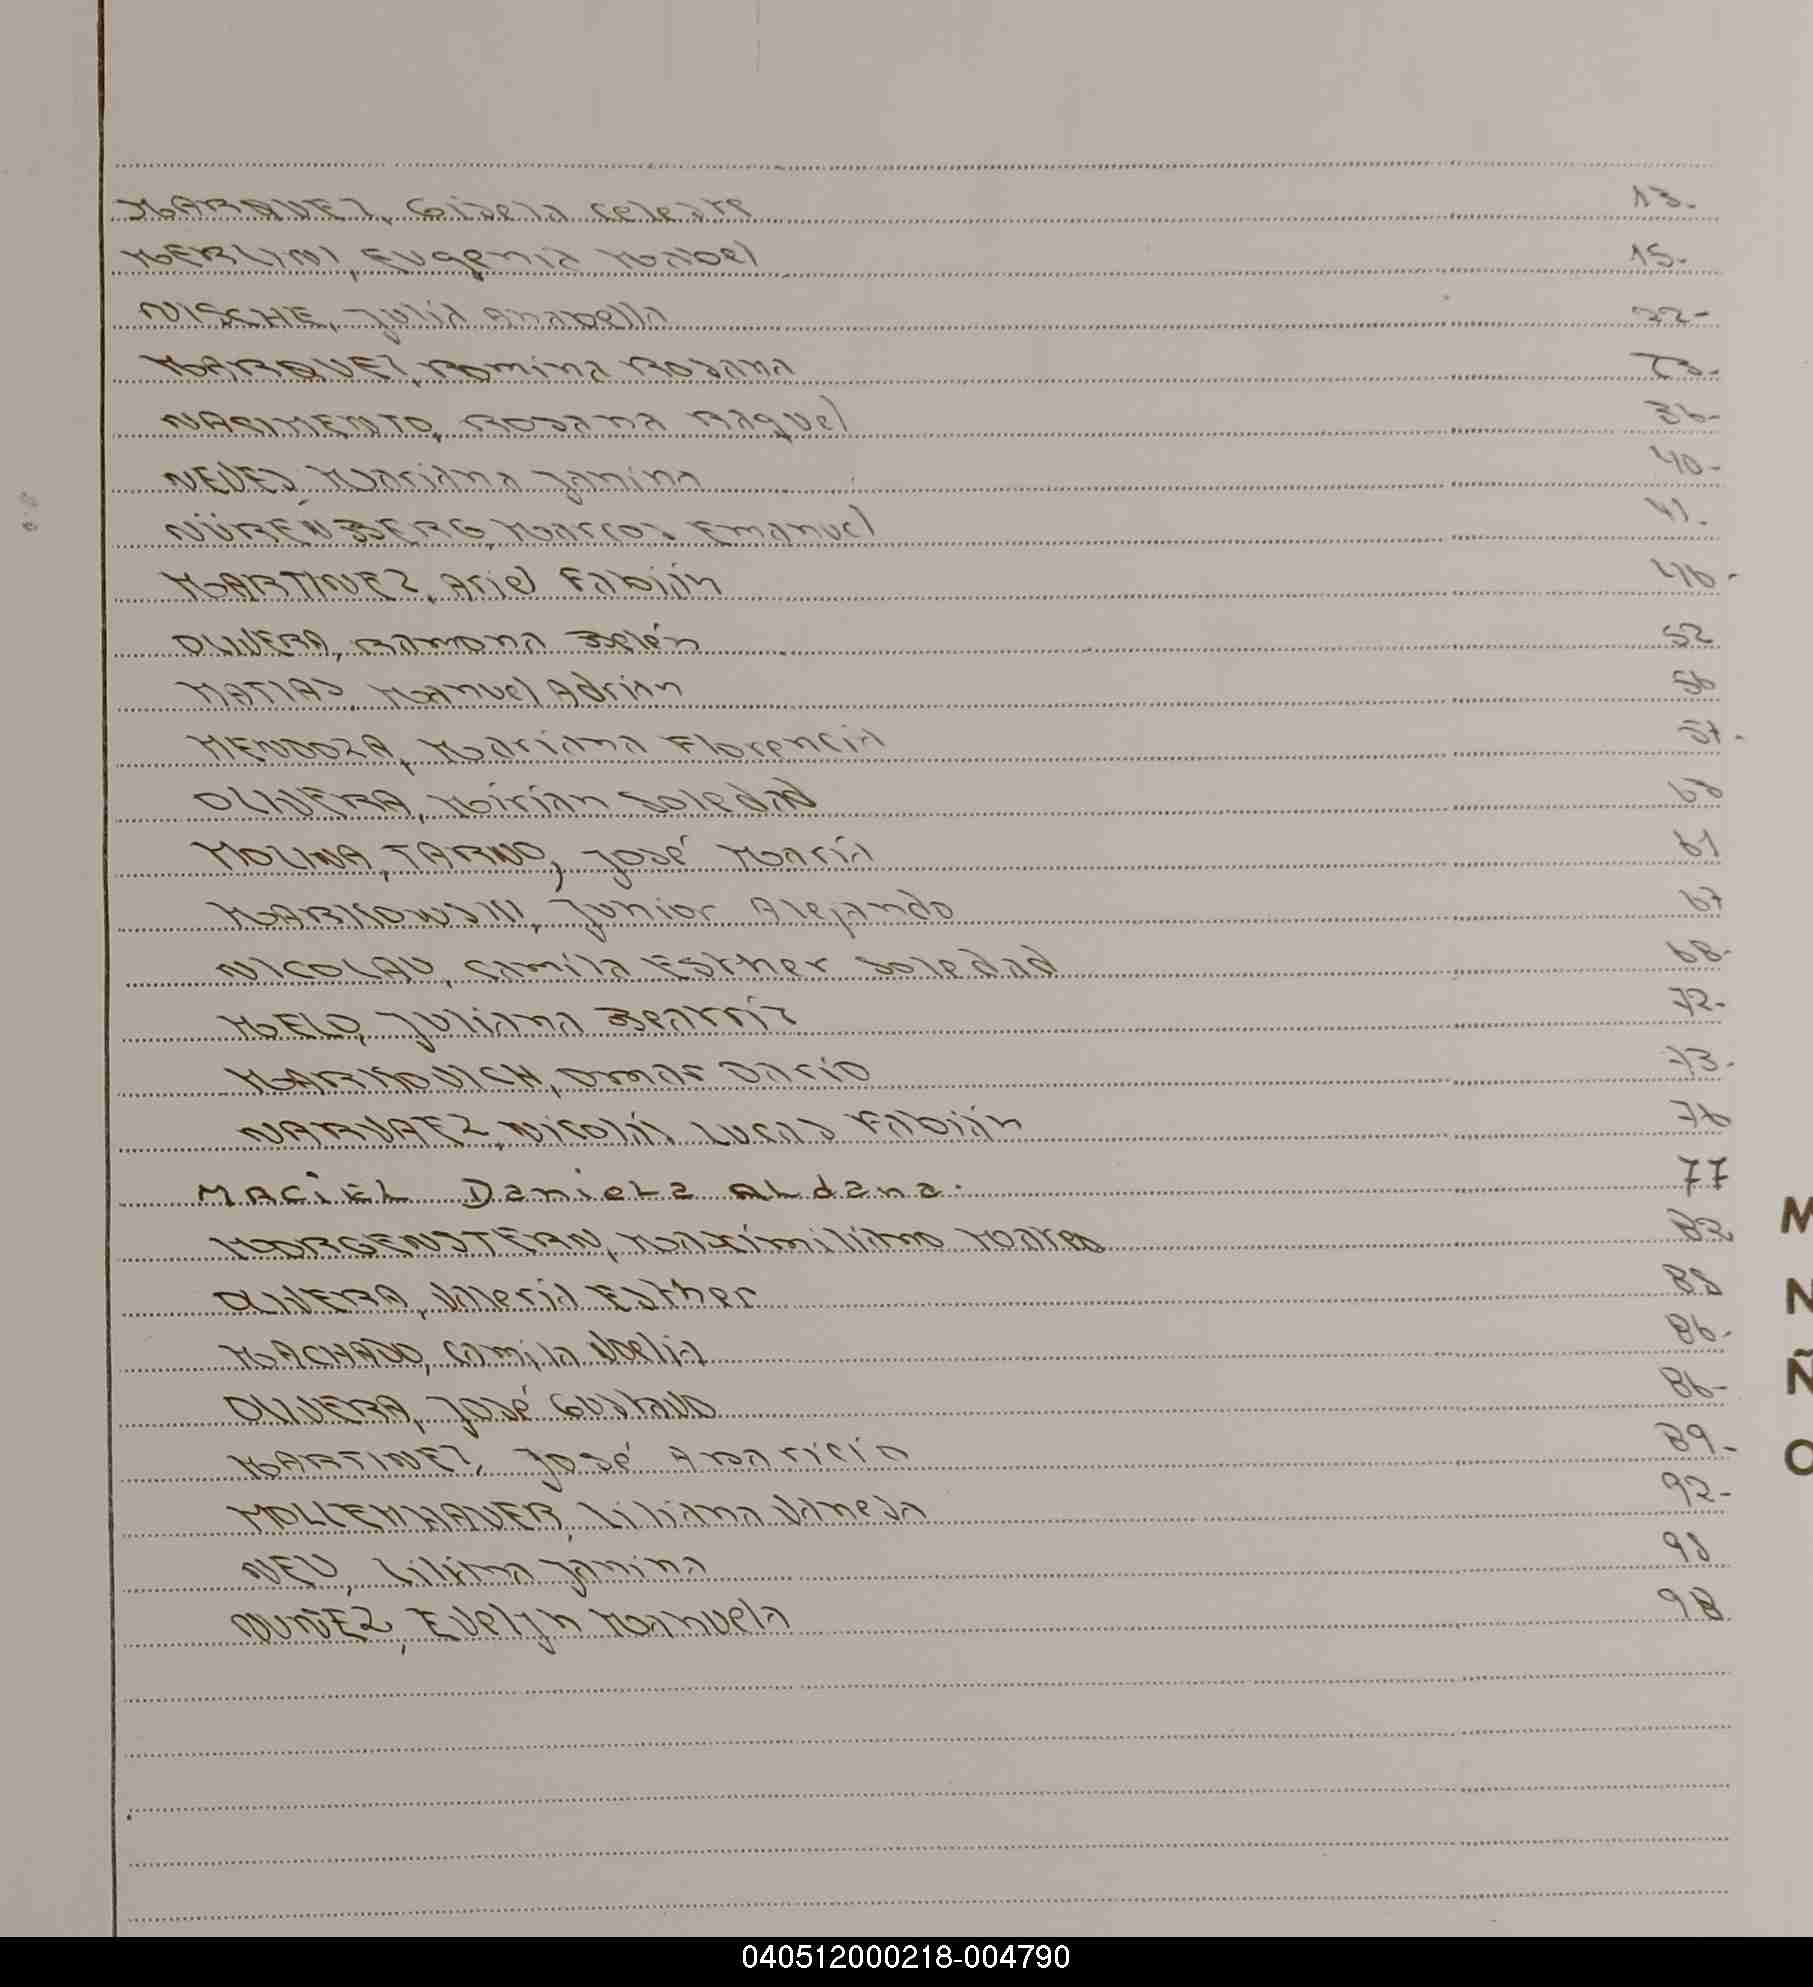 MARQUEZ, Gisela Celeste 13.
MERLINI, Eugenia Mabel 15.
NISCHE, Julia Anabella 22-
MARQUEZ, Romina Rosana 23.
NASIMENTO, Rosana Raquel 36-
NEVES, Mariana Janina 40-
NÜRENBERG, Marcos Emanuel 41.
MARTINEZ, Ariel Fabián 46-
OLIVERA, Ramona Belén 52
MATIAS, Manuel Adrián 56
MENDOZA, Mariana Florencia 57.
OLIVERA, Mirian Soledad
MOLINA, TARNO, José María 61
MARKOWSKI, Junior Alejando 67
NICOLAU, Camila Esther Soledad 68-
MELO, Juliana Beatríz 72-
MARKOVICH, Omar Darío 73-
NARVAEZ, Nicolás Lucas Fabián 76
MACiEL Daniela ALdana. 77
MORGENSTERN, Maximiliano Marco 82
OLIVERA, Valeria Esther
MACHADO, Camila Noelia 86-
OLIVERA, José Gustavo 86-
MARTINEZ, José Aparicio 89-
MOLLEMHAUER, Liliana Vanesa 92-
NEU, Liliana Janina
NUÑEZ, Evelyn Manuela 98
M
N
Ñ
O
040512000218-004790